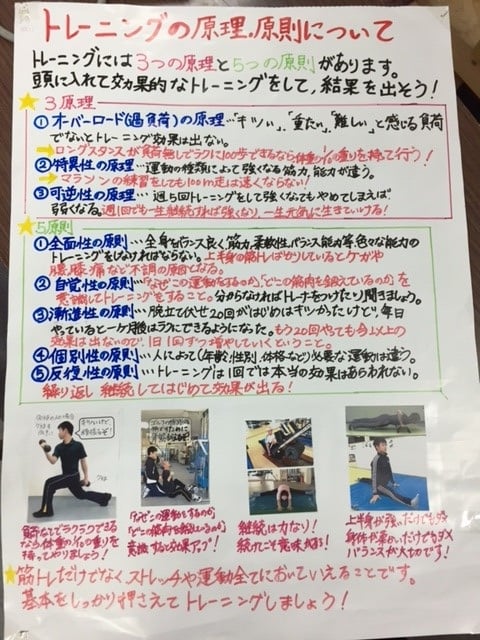 トレーニングの原理.原則について
トレーニングには3つの原理と5つの原則があります。
頭に入れて効果的なトレーニングをして、結果を出そう!
3原理
①オーバーロード(過負荷)の原理…「キツい」、「重たい」、「難しい」と感じる負荷
でないとトレーニング効果は出ない。
→ロングスタンスが負荷無しでラクに100歩できるなら体重の1/10の重りを持って行う!
②特異性の原理…運動の種類によって強くなる筋力、能力が違う。
→マラソンの練習をしても100m走は速くならない!
③可逆性の原理…週5回トレーニングをして強くなってもやめてしまえば、
弱くなる。週1回でも一生継続すれば強くなり、一生元気に生きていける!
5原則
①全面性の原則…全身をバランス良く、筋力、柔軟性、バランス能力等色々な能力の
トレーニングをしなければならない。上半身の筋トレばかりしているとケガや
腰、膝痛など不調の原因となる。
②自覚性の原則…「なぜこの運動をするのか」、「どこの筋肉を鍛えているのか」を
意識してトレーニングをすること。分からなければトレーナーをつけたり聞きましょう。
③漸進性の原則…腕立て伏せ20回がはじめはキツかったけど、毎日
やっていると一ヶ月後はラクにできるようになった。もう20回やっても今以上の
効果は出ないので、1日1回ずつ増やしていくということ。
④個別性の原則…人によって(年齢、性別、体格など)必要な運動は違う。
⑤反復性の原則…トレーニングは1回では本当の効果はあらわれない。
繰り返し継続してはじめて効果が出る!
筋トレがラクラクできる
なら体重の1/10の重りを
持ってやりましょう!
「なぜこの運動をするのか」
「どこの筋肉を鍛えているのか」
意識すると効果アップ!
継続は力なり!
続けてこそ意味がある!
上半身が強いだけでもダメ
身体が柔らかいだけでもダメ
バランスが大切です!
筋トレだけでなく、ストレッチや運動全てにおいていえることです。
基本をしっかり押さえてトレーニングしましょう!